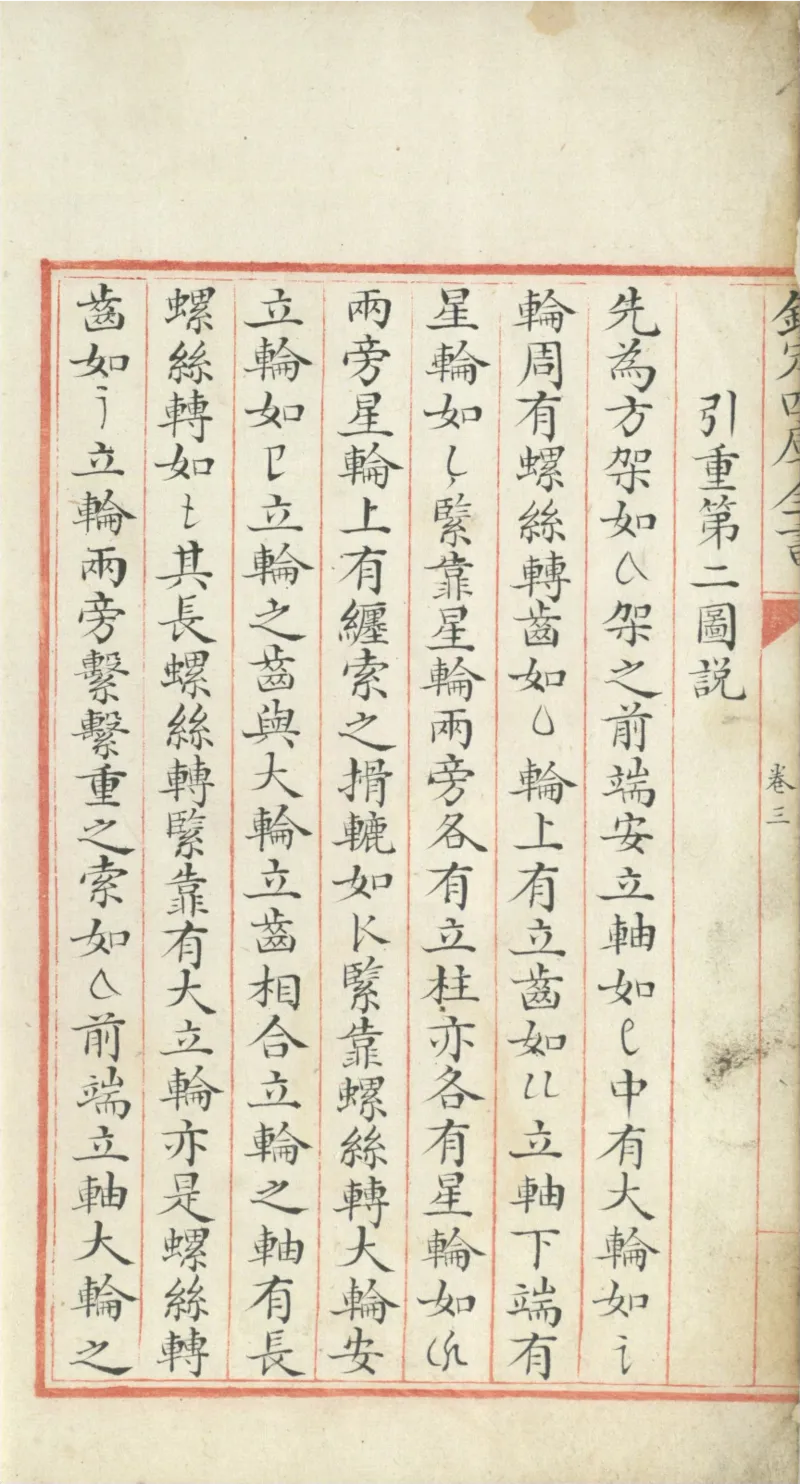 欽定四庫全書
卷三
引重第二圖説
先為方架如架之前端安立軸如中有大輪如
輪周有螺絲轉齒如輪上有立齒如立軸下端有
星輪如緊靠星輪兩旁各有立柱亦各有星輪如
兩旁星輪上有纏索之搰轆如緊靠螺絲轉大輪安
立輪如立輪之齒與大輪立齒相合立輪之軸有長
螺絲轉如其長螺絲轉緊靠有大立輪亦是螺絲轉
齒如立輪兩旁繫繫重之索如前端立軸大輪之